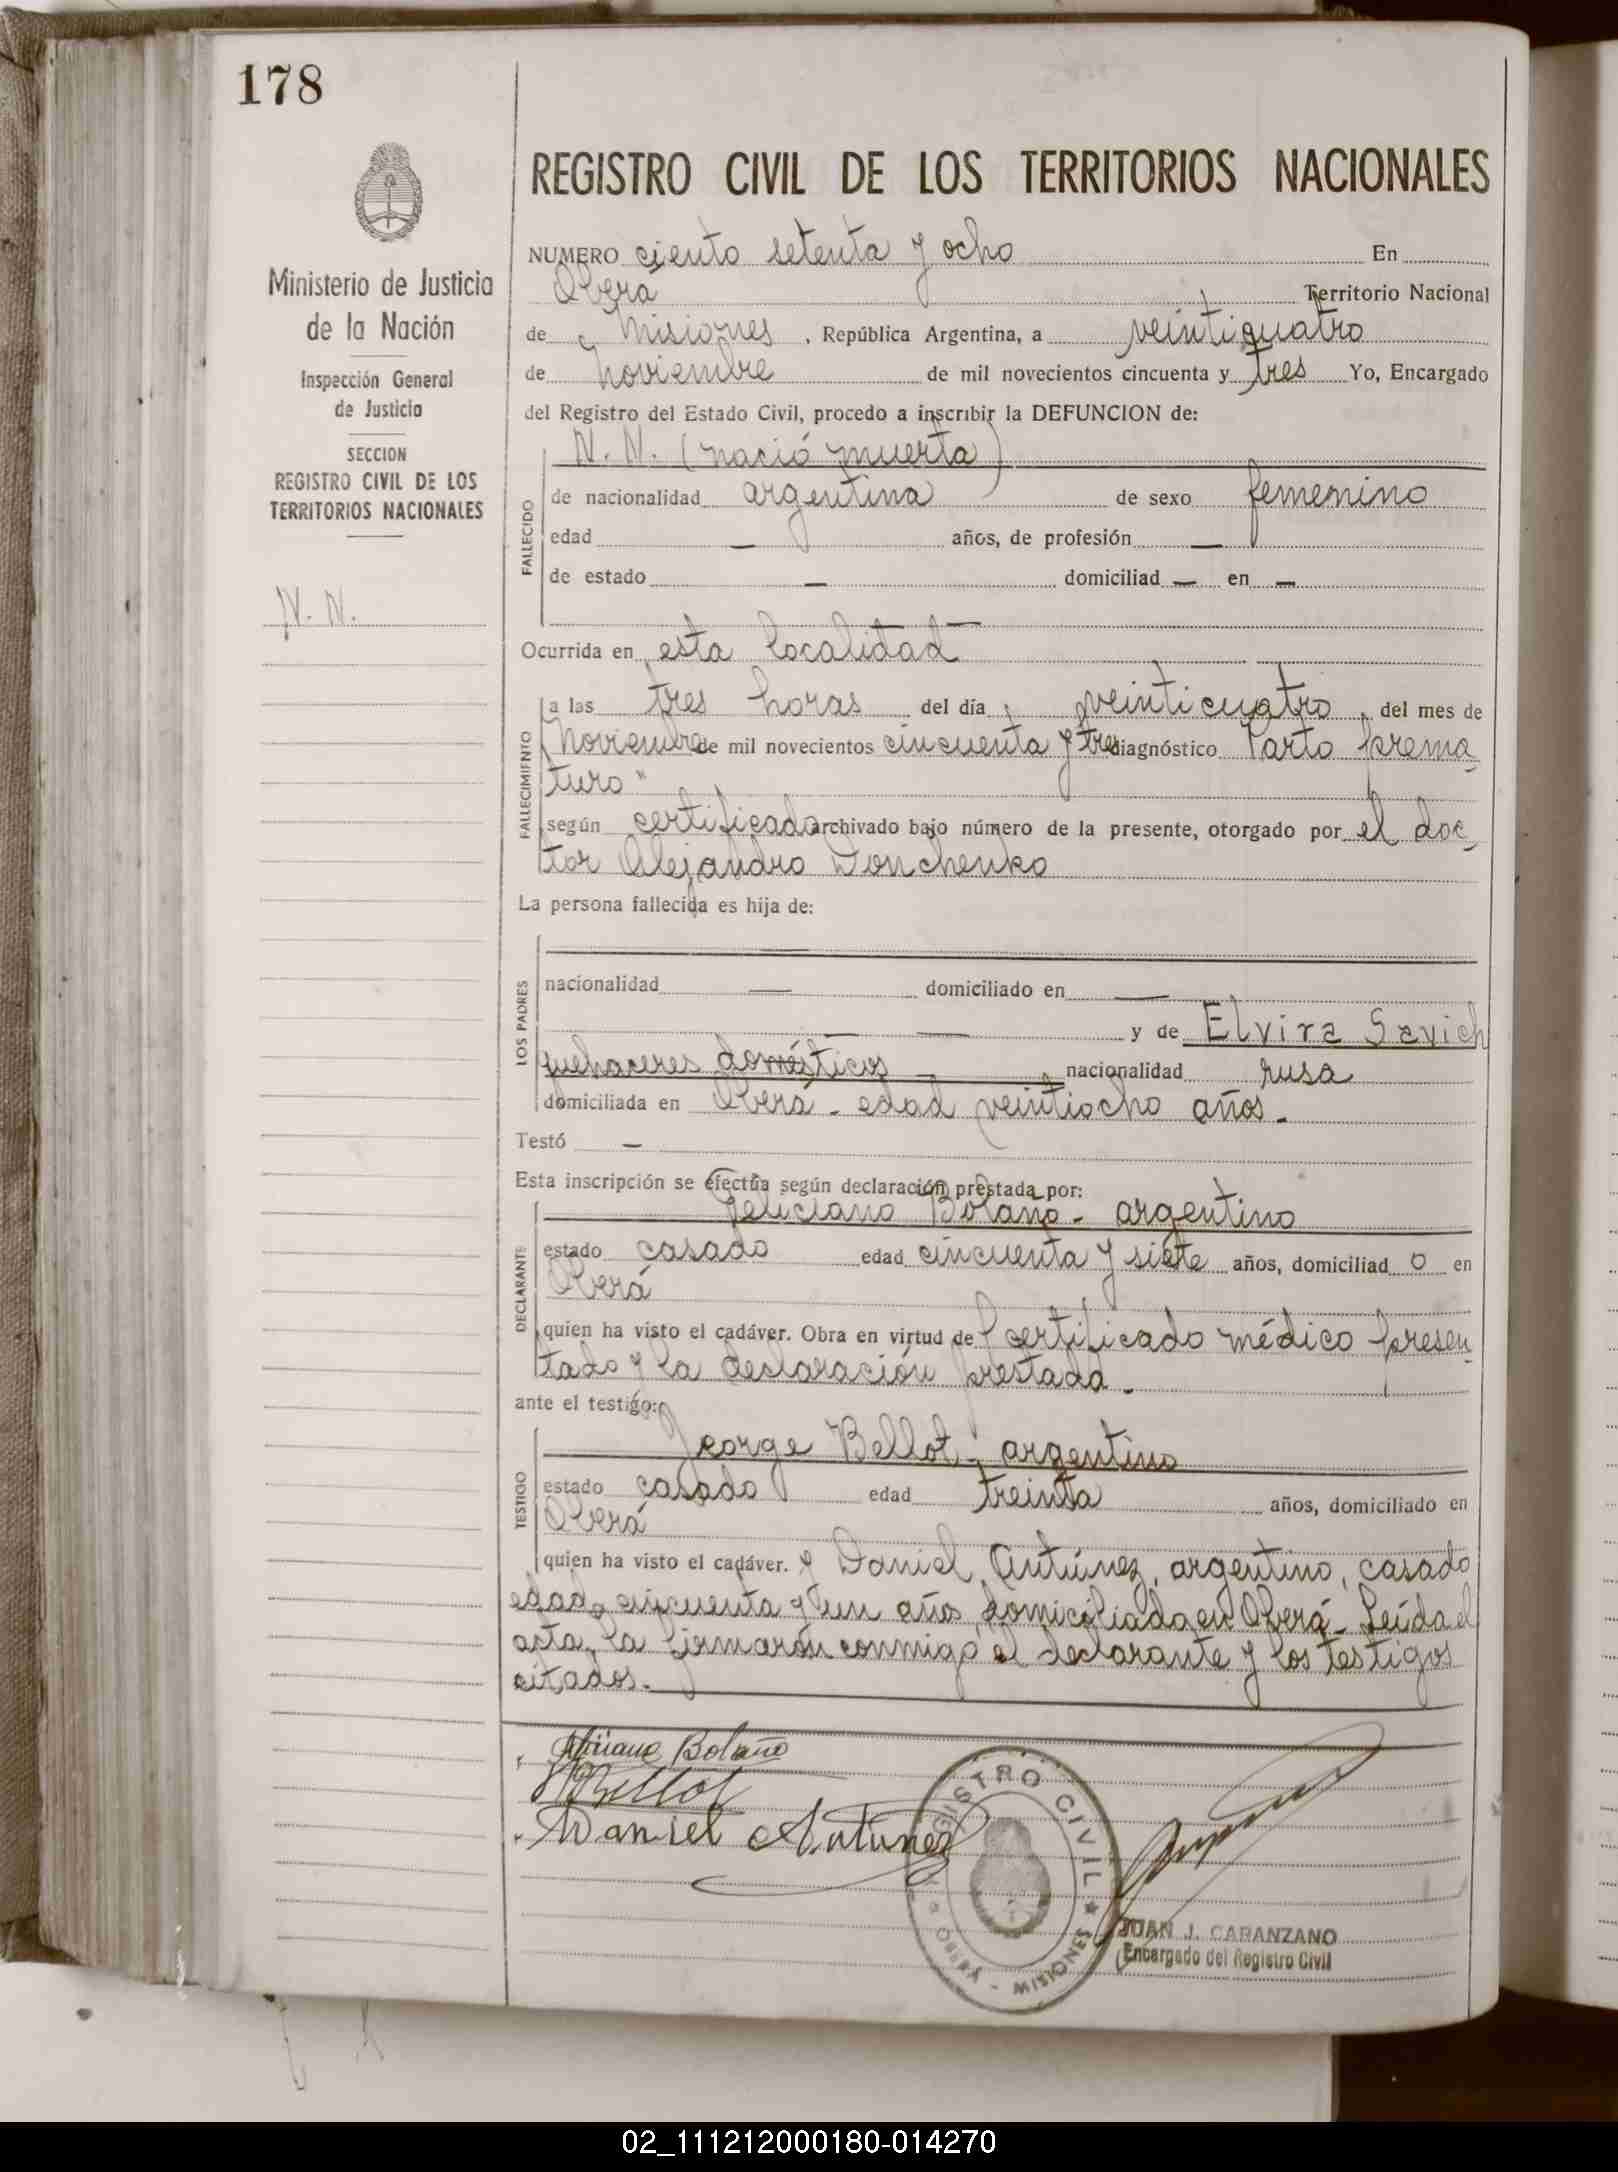 178
REGISTRO CIVIL DE LOS TERRITORIOS NACIONALES
Ministerio de Justicia
de la Nación
Inspección General
de Justicia
SECCION
REGISTRO CIVIL DE LOS
TERRITORIOS NACIONALES
N. N.
NUMERO ciento setenta y ocho En
Oberá Territorio Nacional
de Misiones, República Argentina, a veinticuatro
de Noviembre de mil novecientos cincuenta y tres Yo, Encargado
del Registro del Estado Civil, procedo a inscribir la DEFUNCION de:
N. N. (nació muerta)
FALLECIDO
de nacionalidad argentina de sexo femenino
edad — años, de profesión —
de estado — domiciliad — en —
—
Ocurrida en esta localidad
FALLECIMIENTO
a las tres horas del día veinticuatro, del mes de
Noviembre de mil novecientos cincuenta y tres diagnóstico Parto prema-
turo"
según certificado archivado bajo número de la presente, otorgado por el doc-
tor Alejandro Donchenko
La persona fallecida es hija de:
—
LOS PADRES
nacionalidad — domiciliado en —
— — y de Elvira Savich
quehaceres domésticos — nacionalidad rusa
domiciliada en Oberá - edad veintiocho años.-
Testó —
Esta inscripción se efectúa según declaración prestada por:
Feliciano Bolaño - argentino
DECLARANTE
estado casado edad cincuenta y siete años, domiciliad o en
Oberá
quien ha visto el cadáver. Obra en virtud del certificado médico presen-
tado y la declaración prestada.-
ante el testigo:
George Bellot - argentino
TESTIGO
estado casado edad treinta años, domiciliado en
Oberá
quien ha visto el cadáver. y Daniel Antúnez, argentino, casado
edad cincuenta y un años, domiciliado en Oberá - Leída el
acta, la firmarón conmigo el declarante y los testigos
citados.-
Bolaño
Bellot
Daniel Antunez
REGISTRO CIVIL ★ MISIONES - OBERA
JUAN J. CARANZANO
Encargado del Registro Civil
02_111212000180-014270